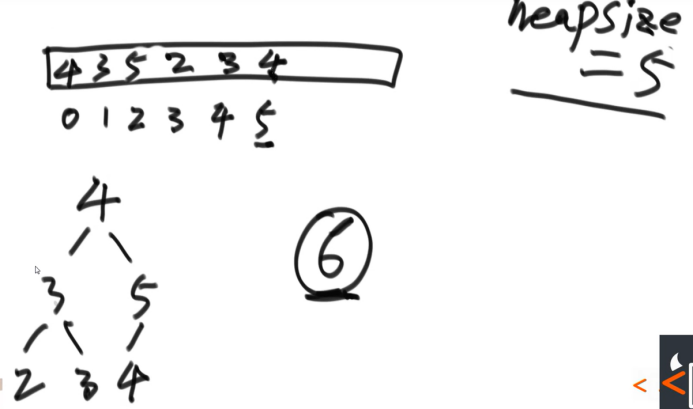 heapsize
= 5
4 3 5 2 3 4
0 1 2 3 4 5
4
6
3 5
2 3 4